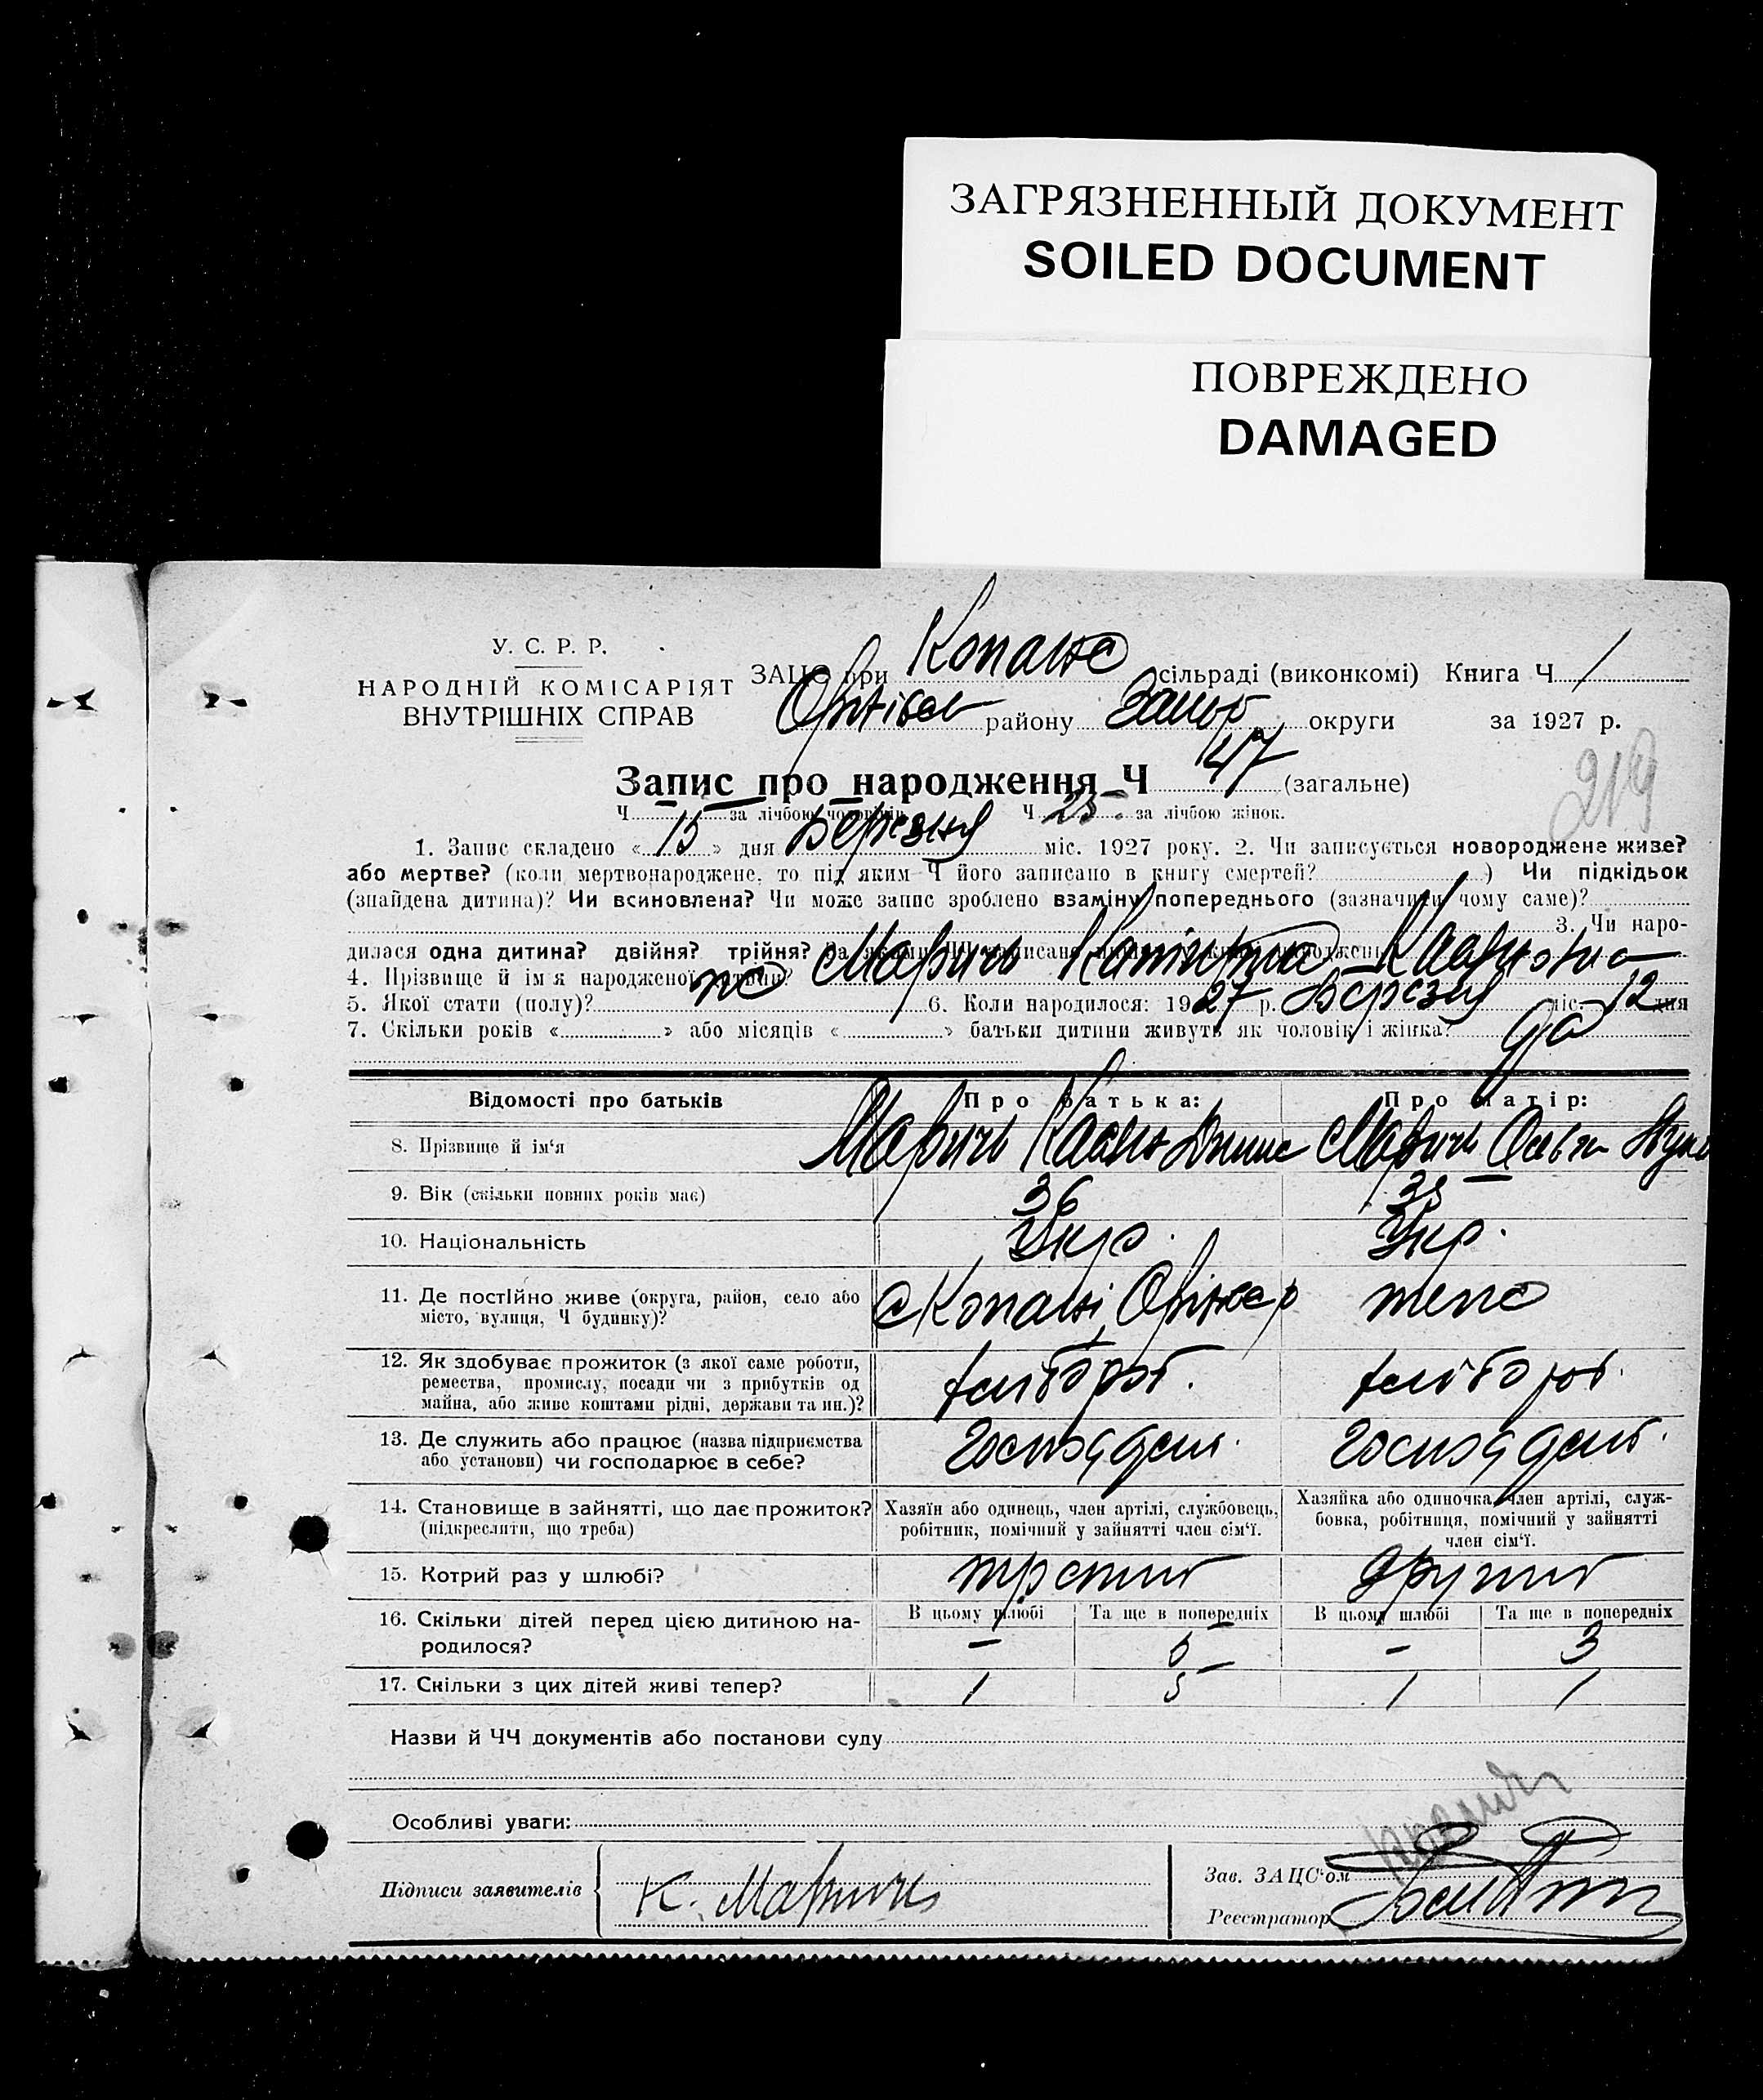 ЗАГРЯЗНЕННЫЙ ДОКУМЕНТ
SOILED DOCUMENT
ПОВРЕЖДЕНО
DAMAGED
У. С. Р. Р.
НАРОДНІЙ КОМІСАРІЯТ
ВНУТРІШНІХ СПРАВ
ЗАЦС при Копанс сільраді (виконкомі) Книга Ч 1
району Запор округи за 1927 р.
Запис про народження Ч 47 (загальне)
219
Ч за лічбою чоловіків Ч 25 за лічбою жінок.
1. Запис складено « 15 » дня Березня міс. 1927 року. 2. Чи записується новороджене живе?
або мертве? (коли мертвонароджене, то під яким Ч його записано в книгу смертей? ) Чи підкідьок
(знайдена дитина)? Чи всиновлена? Чи може запис зроблено взаміну попереднього (зазначити чому саме)?
3. Чи наро-
дилася одна дитина? двійня? трійня? За якими ЧЧ записано
4. Прізвище й імя народженої дитини? Марич
5. Якої стати (полу)? 6. Коли народилося: 1927 р. Березня міс. 12 дня
7. Скільки років « » або місяців « » батьки дитини живуть як чоловік і жінка?
Відомості про батьків Про батька: Про матір:
8. Прізвище й ім'я Марич Марич
9. Вік (скільки повних років має) 36 35
10. Національність Укр. Укр.
11. Де постійно живе (округа, район, село або
місто, вулиця, Ч будинку)? с Копані
12. Як здобуває прожиток (з якої саме роботи,
ремества, промислу, посади чи з прибутків од
майна, або живе коштами рідні, держави та ин.)?
13. Де служить або працює (назва підприємства
або установи) чи господарює в себе?
14. Становище в зайнятті, що дає прожиток?
(підкреслити, що треба)
Хазяїн або одинець, член артілі, службовець,
робітник, помічний у зайнятті член сім'ї.
Хазяйка або одиночка, член артілі, служ-
бовка, робітниця, помічний у зайнятті
член сім'ї.
15. Котрий раз у шлюбі?
16. Скільки дітей перед цією дитиною на-
родилося?
В цьому шлюбі Та ще в попередніх В цьому шлюбі Та ще в попередніх
– 5 – 3
17. Скільки з цих дітей живі тепер? 1 5 1 1
Назви й ЧЧ документів або постанови суду
Особливі уваги:
Підписи заявителів К. Марич
Зав. ЗАЦС'ом
Реєстратор